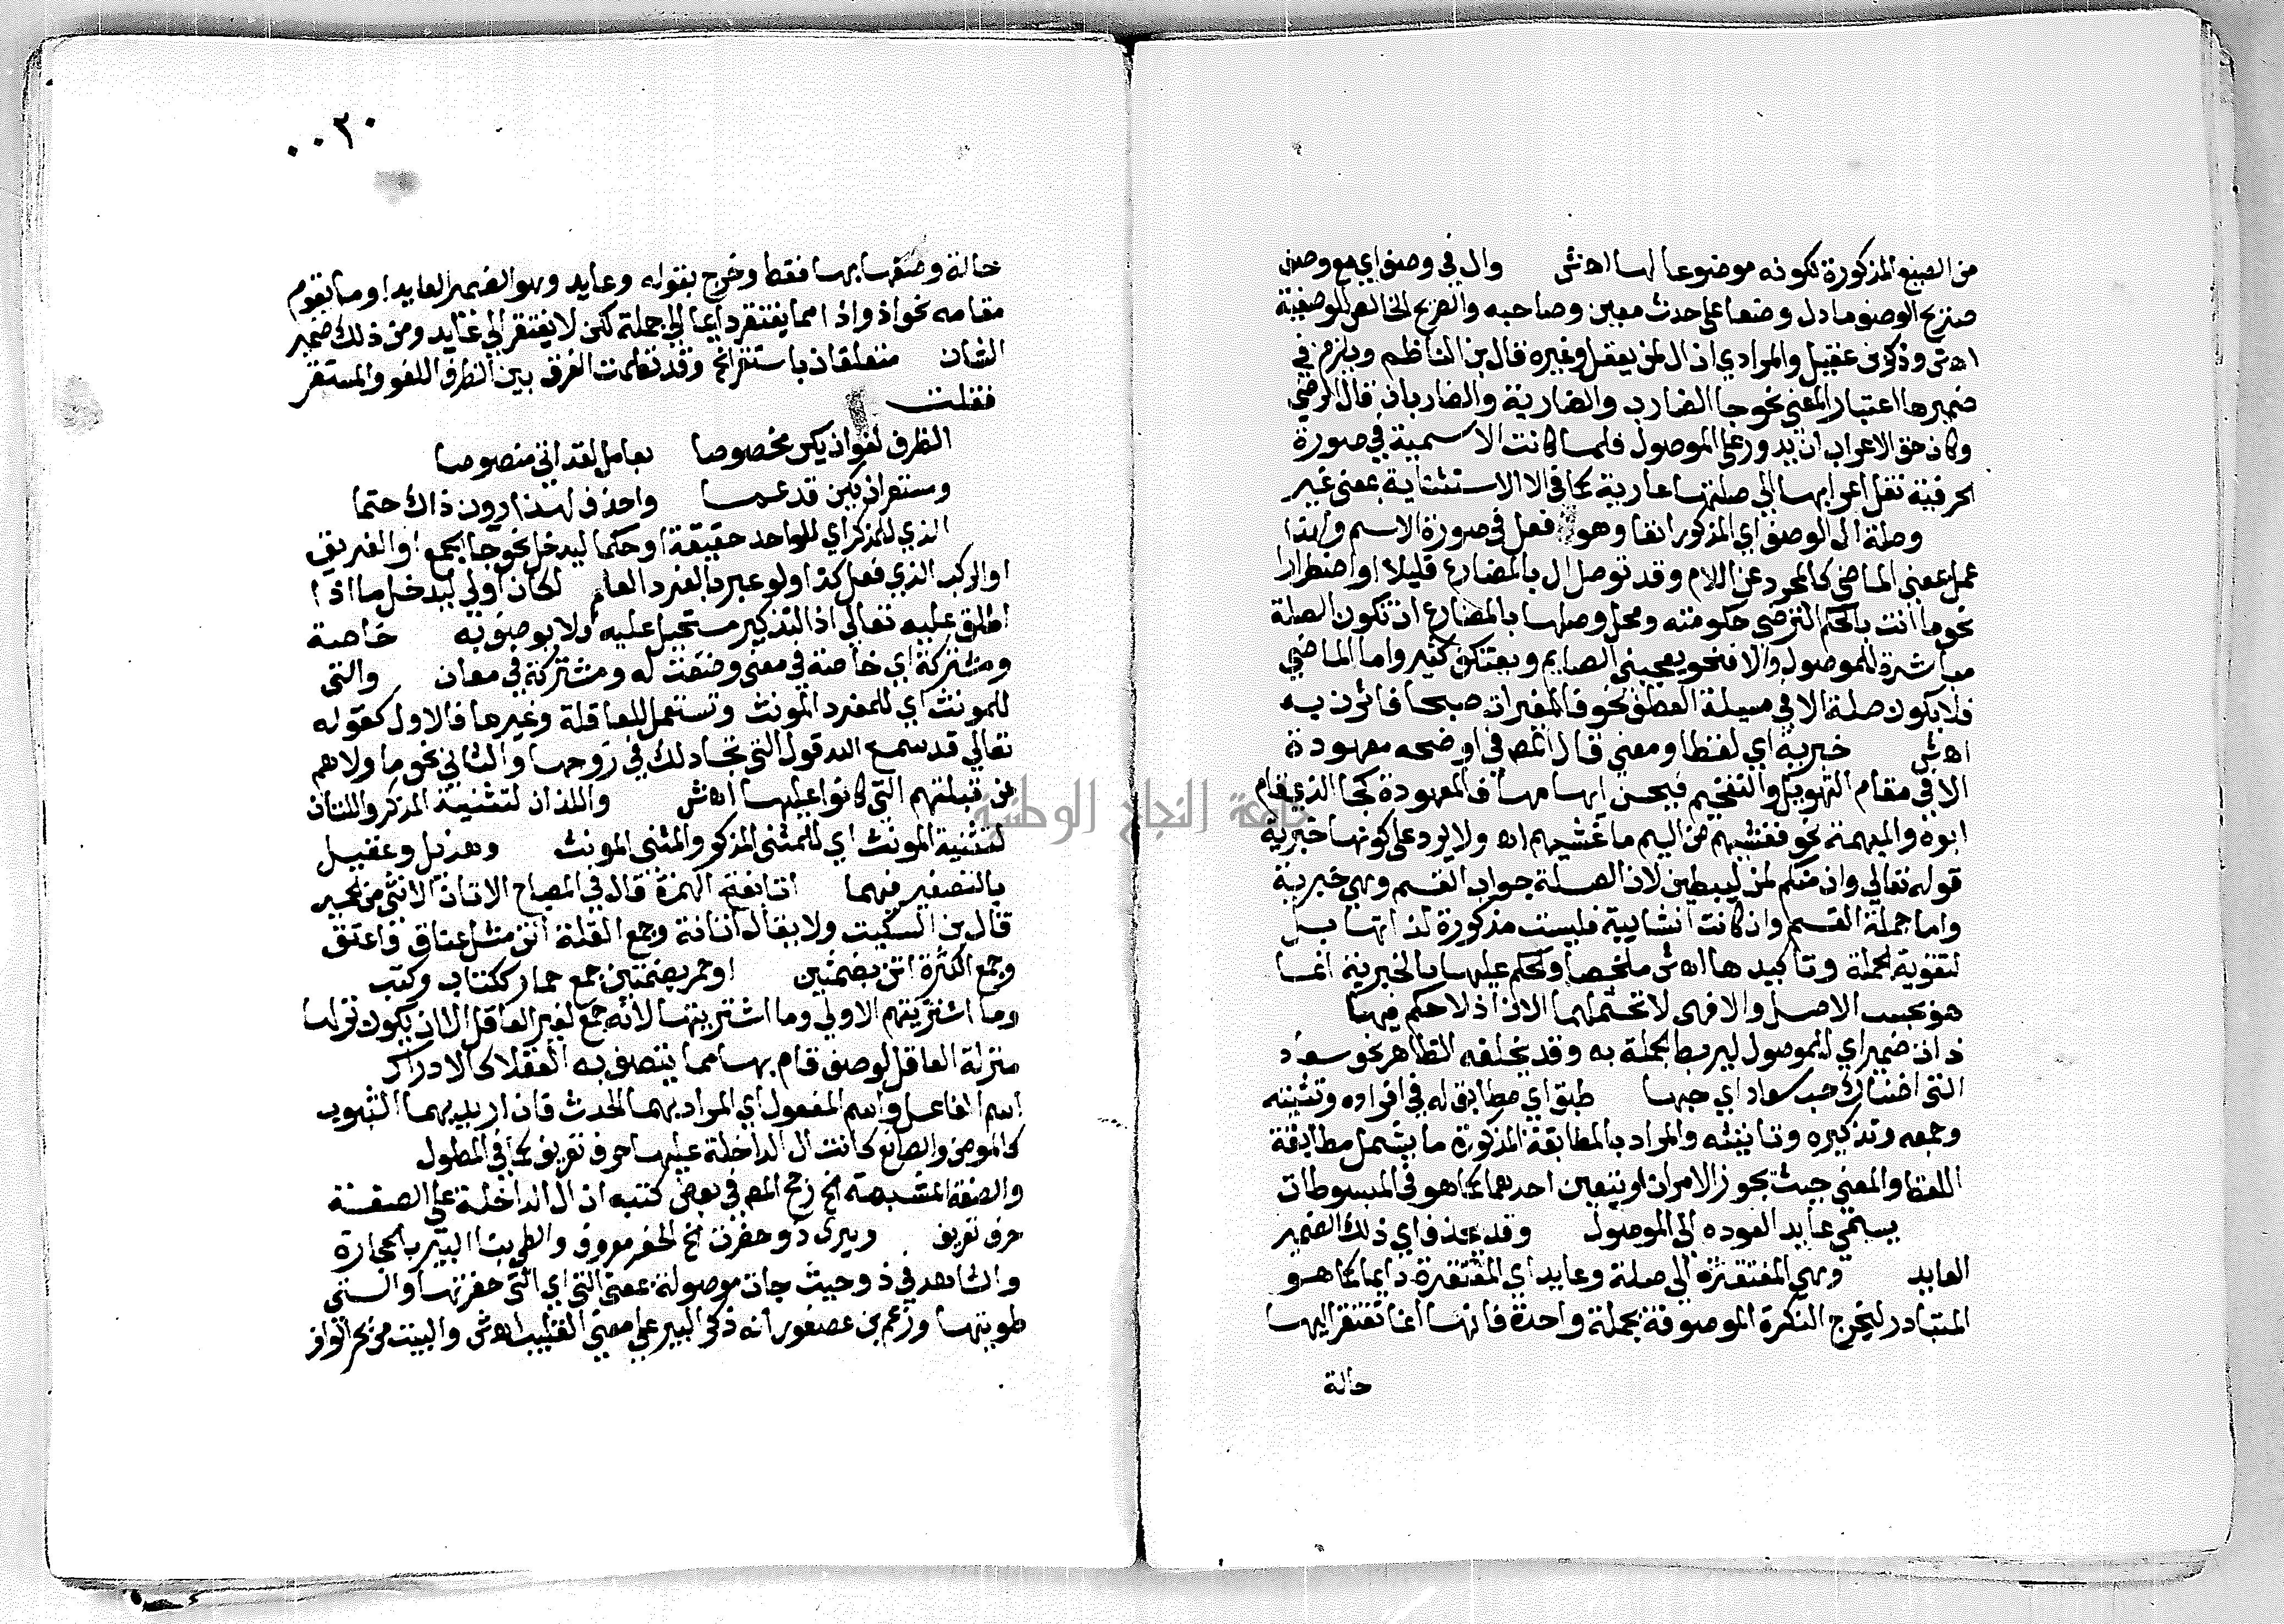 من الصيغ المذكورة لكونه موضوعا لها اه ش وال في وصف اي مع وصف
صريح الوصف ما دل وضعا على حدث معين وصاحبه والصريح الخالص للوصفية
اه ش وذكر بن عقيل والمرادي ان ال لمن يعقل وغيره قال بن الناظم ويلزم في
ضميرها اعتبار المعنى نحو جا الضارب والضاربة والضاربان قال الرضي
وكان حق الاعراب ان يدور على الموصول فلما كانت الاسمية في صورة
الحرفية نقل اعرابها الى صلتها عارية كما في الا الاستثناية بمعنى غير
وصلة ال الوصف اي المذكور انفا وهو فعل في صورة الاسم ولهذا
عمل بمعنى الماضي كالمجرد عن اللام وقد توصل ال بالمضارع قليلا او اضطرارا
نحو ما انت بالحكم الترضى حكومته ومحل وصلها بالمضارع ان تكون الصلة
مباشرة للموصول والا فنحو يعجبني الصايم ويعتكف كثير واما الماضي
فلا يكون صلة الا في مسيلة العطف نحو فالمغيرات صبحا فاثرن به
اه ش خبرية اي لفظا ومعنى قال المص في اوضحه معهودة
الا في مقام التهويل والتفخيم فيحسن ابهامها فالمعهودة كجا الذي قام
ابوه والمبهمة نحو فغشيهم من اليم ما غشيهم اه ولا يرد على كونها خبرية
قوله تعالى وان منكم لمن ليبطين لان الصلة جواب القسم وهي خبرية
واما جملة القسم وان كانت انشايية فليست مذكورة لذاتها بل
لتقوية الجملة وتاكيدها اه ش ملخصا والحكم عليها بالخبرية انما
هو بحسب الاصل والا فهى لا تحتملهما الان اذ لا حكم فيها
ذات ضمير اي للموصول ليربط الجملة به وقد يخلفه الظاهر نحو سعاد
التى اضناك حب سعاد اي حبها طبق اي مطابق له في افراده وتثنيته
وجمعه وتذكيره وتانيثه والمراد بالمطابقة المذكورة ما يشمل مطابقة
اللفظ والمعنى حيث يجوز الامران او يتعين احدهما كما هو في المبسوطات
يسمى عايد العوده الى الموصول وقد يحذف اي ذلك الضمير
العايد وهي المفتقرة الى صلة وعايد اي المفتقرة دايما كما هو
المتبادر ليخرج النكرة الموصوفة بجملة واحدة فانها انما تفتقر اليها
حالة
٠٠٢٠
حالة وصفها بها فقط وخرج بقوله وعايد وهو الضمير العايد او ما يقوم
مقامه نحو اذ واذا مما يفتقر دايما الى جملة لكن لا يفتقر الى عايد ومن ذلك ضمير
الشان متعلقان باستقر الخ وقد نظمت الفرق بين الظرف اللغو والمستقر
فقلت
الظرف لغو ان يكن مخصوصا بعامل لقد اتى منصوصا
ومستقر ان يكن قد عما واحذف لهذا دون ذاك حتما
الذي للمذكر اي للواحد حقيقة او حكما ليدخل نحو جا الجمع او الفريق
او الركب الذي فعل كذا ولو عبر بالمفرد العام لكان اولى ليدخل ما اذا
اطلق عليه تعالى اذ التذكير مستحيل عليه ولا يوصف به خاصة
ومشتركة اي خاصة في معنى وضعت له ومشتركة في معان والتى
للمونث اي للمفرد المونث وتستعمل للعاقلة وغيرها فالاول كقوله
تعالى قد سمع الله قول التى تجادلك في زوجها والثاني نحو ما ولاهم
عن قبلتهم التي كانوا عليها اه ش واللذان لتثنية المذكر واللتان
لتثنية المونث اي للمثنى المذكر والمثنى المونث وهذيل وعقيل
بالتصغير فيهما اتانا بفتح الهمزة قال في المصباح الاتان الانثى من الحمير
قال بن السكيت ولا يقال اتانة وجمع القلة اتن مثل عناق واعنق
وجمع الكثرة اتن بضمتين او حمر بضمتين جمع حمار ككتاب وكتب
وما اشتريتهم الاولى وما اشتريتها لانه جمع لغير العاقل الا ان يكون نزلها
منزلة العاقل لوصف قام بها مما يتصف به العقلا كالادراك
اسم الفاعل واسم المفعول اي المراد بهما الحدث فان اريد بهما الثبوت
كالمومن والصانع كانت ال الداخلة عليها حرف تعريف كما في المطول
والصفة المشبهة الخ رجح المص في بعض كتبه ان ال الداخلة على الصفة
حرف تعريف وبيرى ذو حفرت الخ الحفر معروف والطي بنا البير بالحجارة
والشاهد في ذو حيث جات موصولة بمعنى التى اي التى حفرتها والتى
طويتها وزعم بن عصفور انه ذكر البير على معنى القليب اه ش والبيت من بحر الوافر